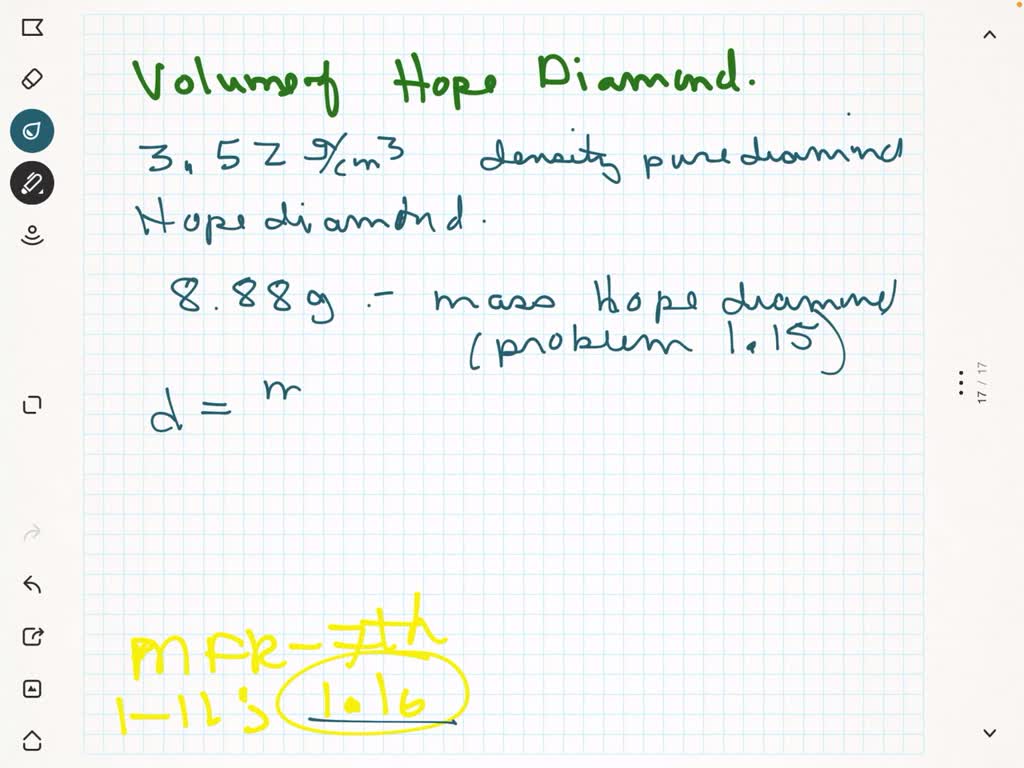 Volume of Hope Diamond.
3.52 g/cm3 density pure diamind
Hope diamond.
8.88g :- mass Hope diamind
(problem 1.15)
d = m
17 / 17
MFR-7th
1-11's 1.16